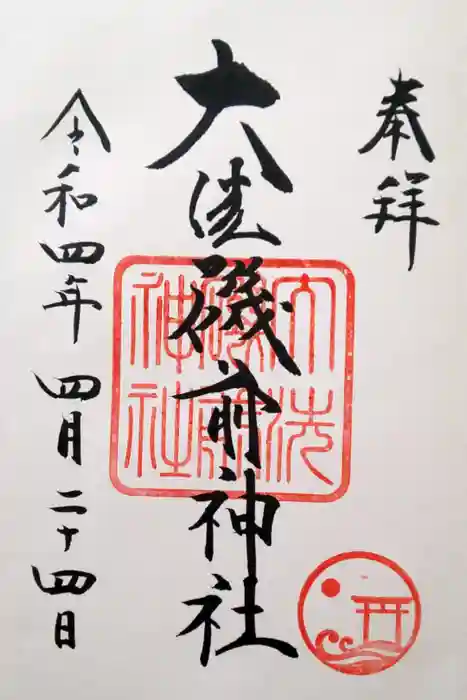 奉拝
大洗磯前神社
令和四年四月二十四日
大洗
磯前
神社